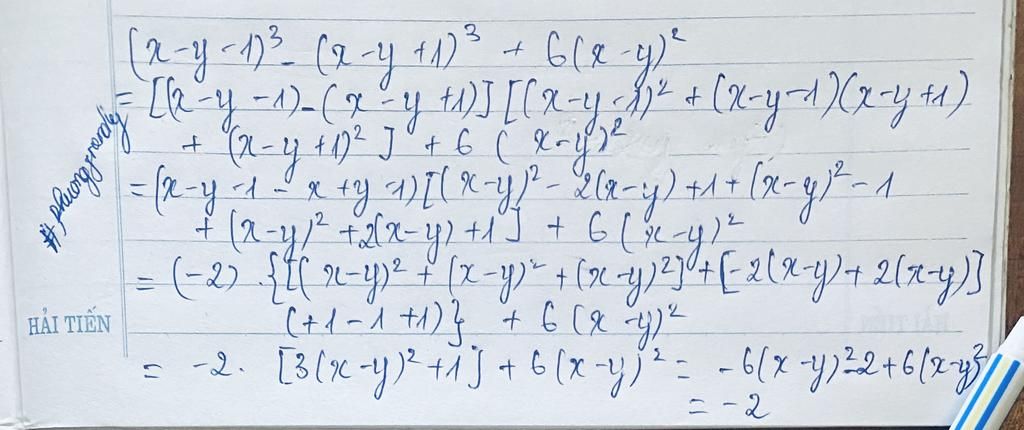 (x-y-1)³ - (x-y+1)³ + 6(x-y)²
= [(x-y-1)-(x-y+1)] [(x-y-1)² + (x-y-1)(x-y+1)
+ (x-y+1)² ] + 6 (x-y)²
= (x-y-1-x+y-1)[(x-y)² - 2(x-y)+1+(x-y)²-1
+ (x-y)² +2(x-y)+1] + 6(x-y)²
= (-2) . {[(x-y)² + (x-y)² + (x-y)²]+[-2(x-y)+2(x-y)]
(+1-1+1)} + 6(x-y)²
= -2. [3(x-y)²+1]+6(x-y)² = -6(x-y)²-2+6(x-y)²
= -2
HẢI TIẾN